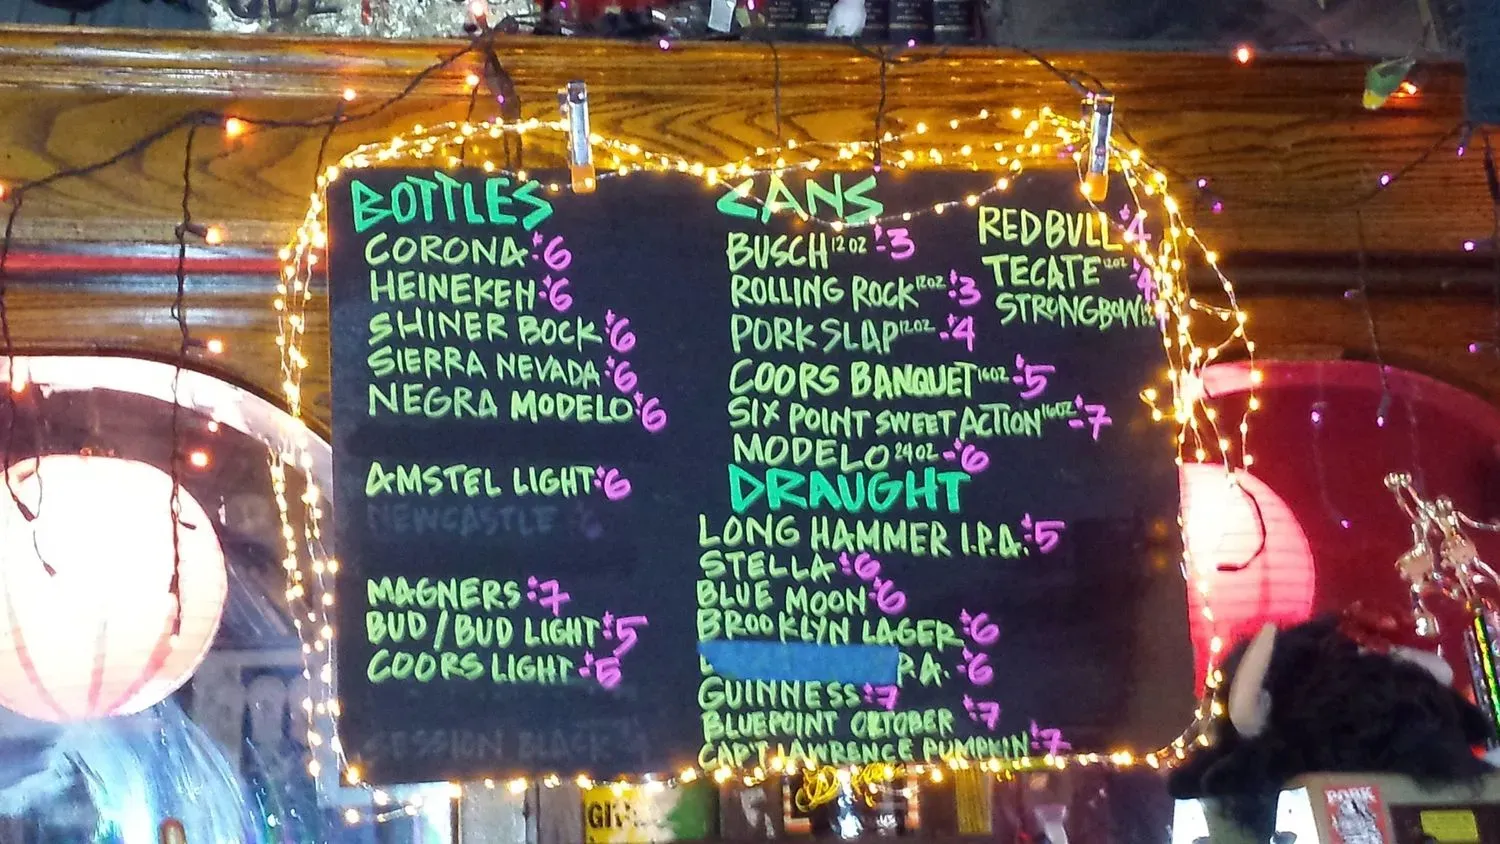 BOTTLES
CORONA - $6
HEINEKEN - $6
SHINER BOCK - $6
SIERRA NEVADA - $6
NEGRA MODELO - $6
AMSTEL LIGHT - $6
NEWCASTLE 6
MAGNERS - $7
BUD / BUD LIGHT - $5
COORS LIGHT - $5
SESSION BLACK
CANS
BUSCH 12 OZ - $3
ROLLING ROCK 12OZ - $3
PORK SLAP 12OZ - $4
COORS BANQUET 16OZ - $5
SIX POINT SWEET ACTION 16OZ - $7
MODELO 24 OZ - $6
RED BULL $4
TECATE 12OZ $4
STRONGBOW
DRAUGHT
LONG HAMMER I.P.A. $5
STELLA - $6
BLUE MOON - $6
BROOKLYN LAGER - $6
P.A. - $6
GUINNESS - $7
BLUEPOINT OKTOBER - $7
CAP'T LAWRENCE PUMPKIN - $7
PORK